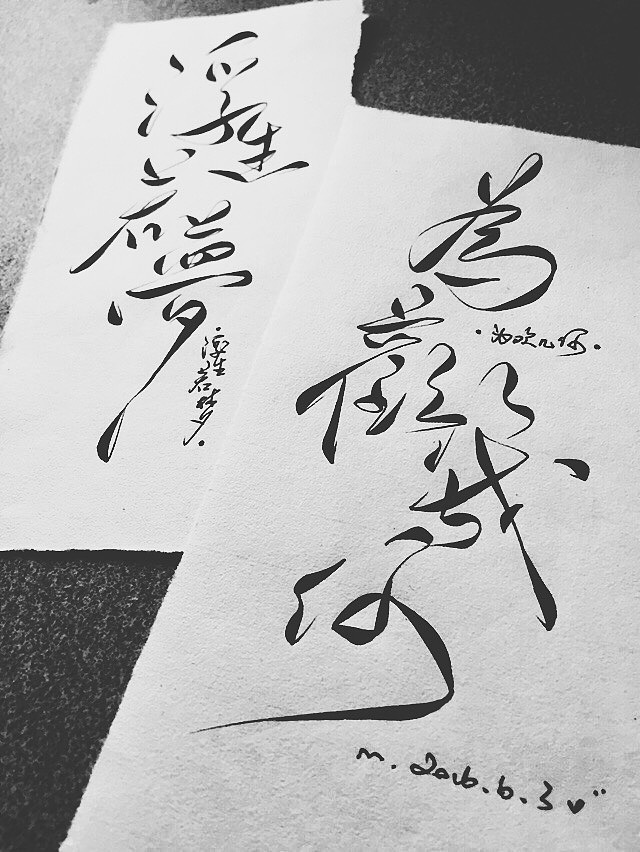 浮生若夢
浮生若梦.
為歡幾何
·为欢几何.
m. 2016.6.3 ♥